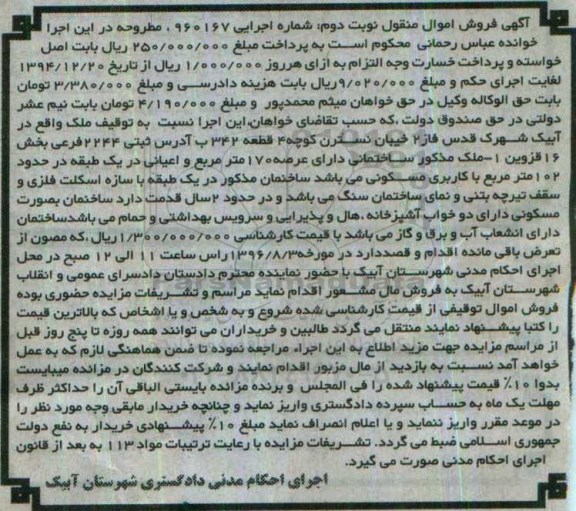 آگهی فروش اموال منقول نوبت دوم: شماره اجرایی ۹۶۰۱۶۷ ، مطروحه در این اجرا
خوانده عباس رحمانی محکوم است به پرداخت مبلغ ۲۵۰/۰۰۰/۰۰۰ ریال بابت اصل
خواسته و پرداخت خسارت وجه التزام به ازای هرروز ۱/۰۰۰/۰۰۰ ریال از تاریخ ۱۳۹۴/۱۲/۲۰
لغایت اجرای حکم و مبلغ ۹/۰۲۰/۰۰۰ریال بابت هزینه دادرسی و مبلغ ۳/۳۸۰/۰۰۰ تومان
بابت حق الوکاله وکیل در حق خواهان میثم محمدپور و مبلغ ۴/۱۹۰/۰۰۰ تومان بابت نیم عشر
دولتی در حق صندوق دولت ،که حسب تقاضای خواهان،این اجرا نسبت به توقیف ملک واقع در
آبیک شهرک قدس فاز۲ خیبان نسترن کوچه۴ قطعه ۳۴۲ ب آدرس ثبتی ۲۲۴۴فرعی بخش
۱۶قزوین ۱-ملک مذکور ساختمانی دارای عرصه۱۷۰متر مربع و اعیانی در یک طبقه در حدود
۱۰۲متر مربع با کاربری مسکونی می باشد ساختمان مذکور در یک طبقه با سازه اسکلت فلزی و
سقف تیرچه بتنی و نمای ساختمان سنگ می باشد و در حدود ۲سال قدمت دارد ساختمان بصورت
مسکونی دارای دو خواب آشپزخانه ،هال و پذیرایی و سرویس بهداشتی و حمام می باشدساختمان
دارای انشعاب آب و برق و گاز می باشد با قیمت کارشناسی ۱/۳۰۰/۰۰۰/۰۰۰ریال ،که مصون از
تعرض باقی مانده اقدام و قصددارد در مورخه۱۳۹۶/۸/۳راس ساعت ۱۱ الی ۱۲ صبح در محل
اجرای احکام مدنی شهرستان آبیک با حضور نماینده محترم دادستان دادسرای عمومی و انقلاب
شهرستان آبیک به فروش مال مشعور اقدام نماید مراسم و تشریفات مزایده حضوری بوده
فروش اموال توقیفی از قیمت کارشناسی شده شروع و به شخص و یا اشخاص که بالاترین قیمت
را کتبا پیشنهاد نمایند منتقل می گردد طالبین و خریداران می توانند همه روزه تا پنج روز قبل
از مراسم مزایده جهت مزید اطلاع به این اجراء مراجعه نموده تا ضمن هماهنگی لازم که به عمل
خواهد آمد نسبت به بازدید از مال مزبور اقدام نمایند و شرکت کنندگان در مزایده میبایست
بدوا ۱۰٪ قیمت پیشنهاد شده را فی المجلس و برنده مزانده بایستی الباقی آن را حداکثر ظرف
مهلت یک ماه به حساب سپرده دادگستری واریز نماید و چنانچه خریدار مابقی وجه مورد نظر را
در موعد مقرر واریز ننماید و یا اعلام انصراف نماید مبلغ ۱۰٪ پیشنهادی خریدار به نفع دولت
جمهوری اسلامی ضبط می گردد. تشریفات مزایده با رعایت ترتیبات مواد ۱۱۳ به بعد از قانون
اجرای احکام مدنی صورت می گیرد.
اجرای احکام مدنی دادگستری شهرستان آبیک